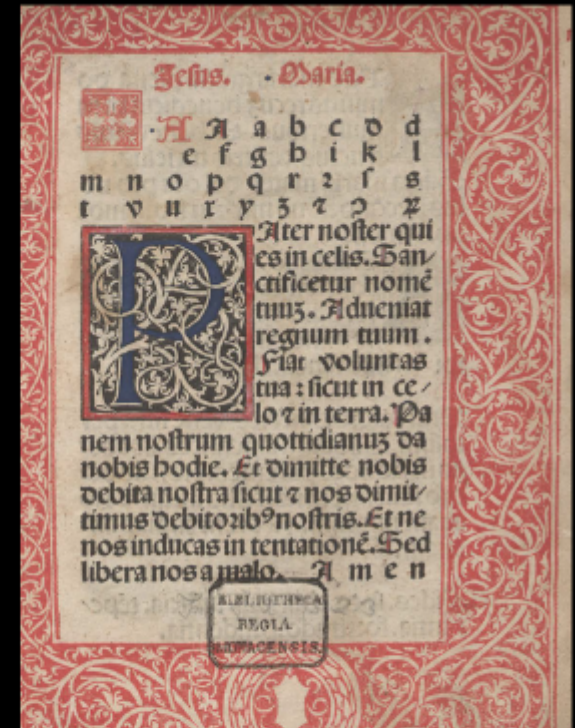 Jesus. Maria.
A A a b c d d
e f g h i k l
m n o p q r ꝛ ſ s
t v u x y ʒ ⁊ ꝯ
PAter noſter qui
es in celis. San⸗
ctificetur nomē
tuuʒ. Adueniat
regnum tuum.
Fiat voluntas
tua: ſicut in ce⸗
lo ⁊ in terra. Pa
nem noſtrum quottidianuʒ da
nobis hodie. Et dimitte nobis
debita noſtra ſicut ⁊ nos dimit⸗
timus debitoꝛibꝰ noſtris. Et ne
nos inducas in tentationē. Sed
libera nos a malo. A m e n
BIBLIOTHECA
REGIA
MONACENSIS.